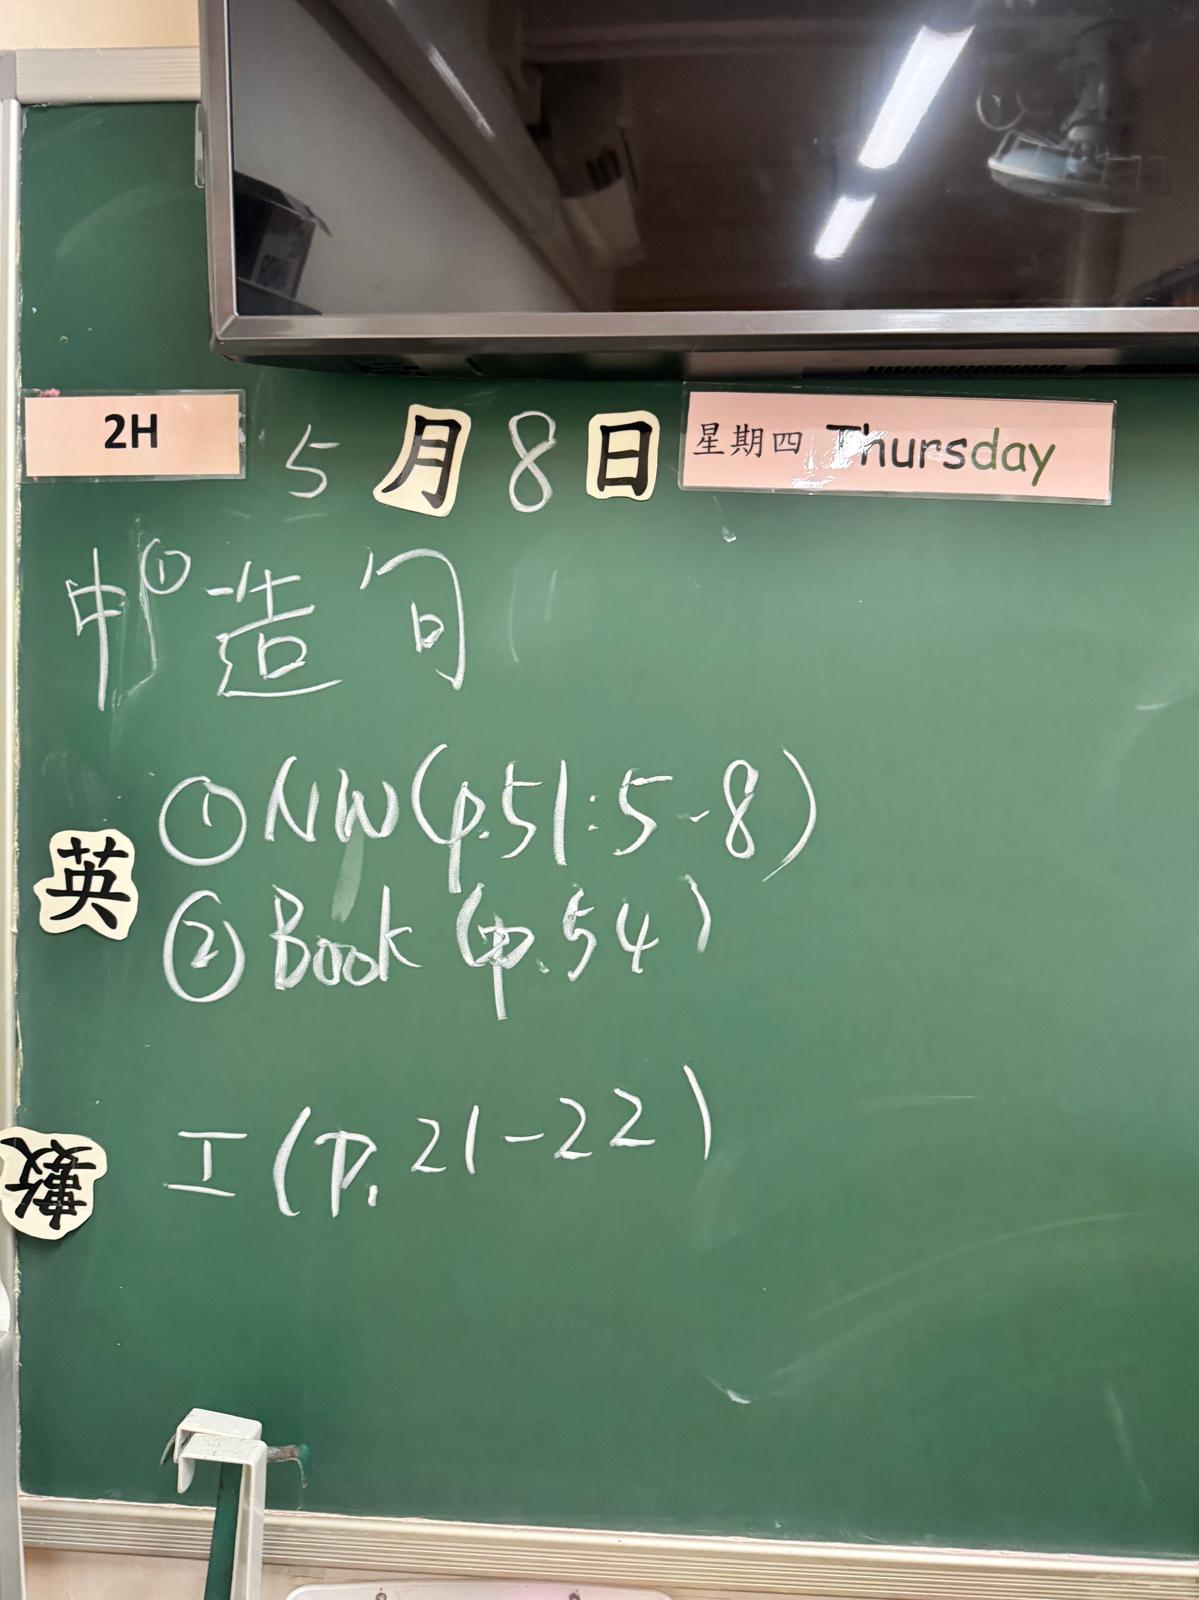 2H 5月8日 星期四 Thursday
中 ① 造句
① NW (p.51:5-8)
英
② Book (p.54)
數 I (p.21-22)